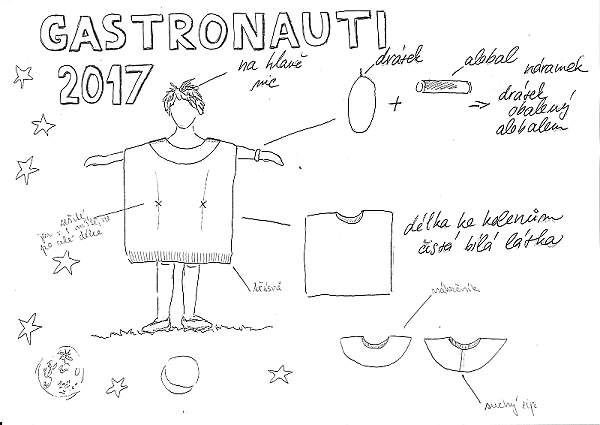 GASTRONAUTI
2017
na hlavě
nic
drátek
alobal
+
náramek
drátek
obalený
alobalem
sešité
po celé délce
délka ke kolenům
čistá bílá látka
nákrčník
suchý zip